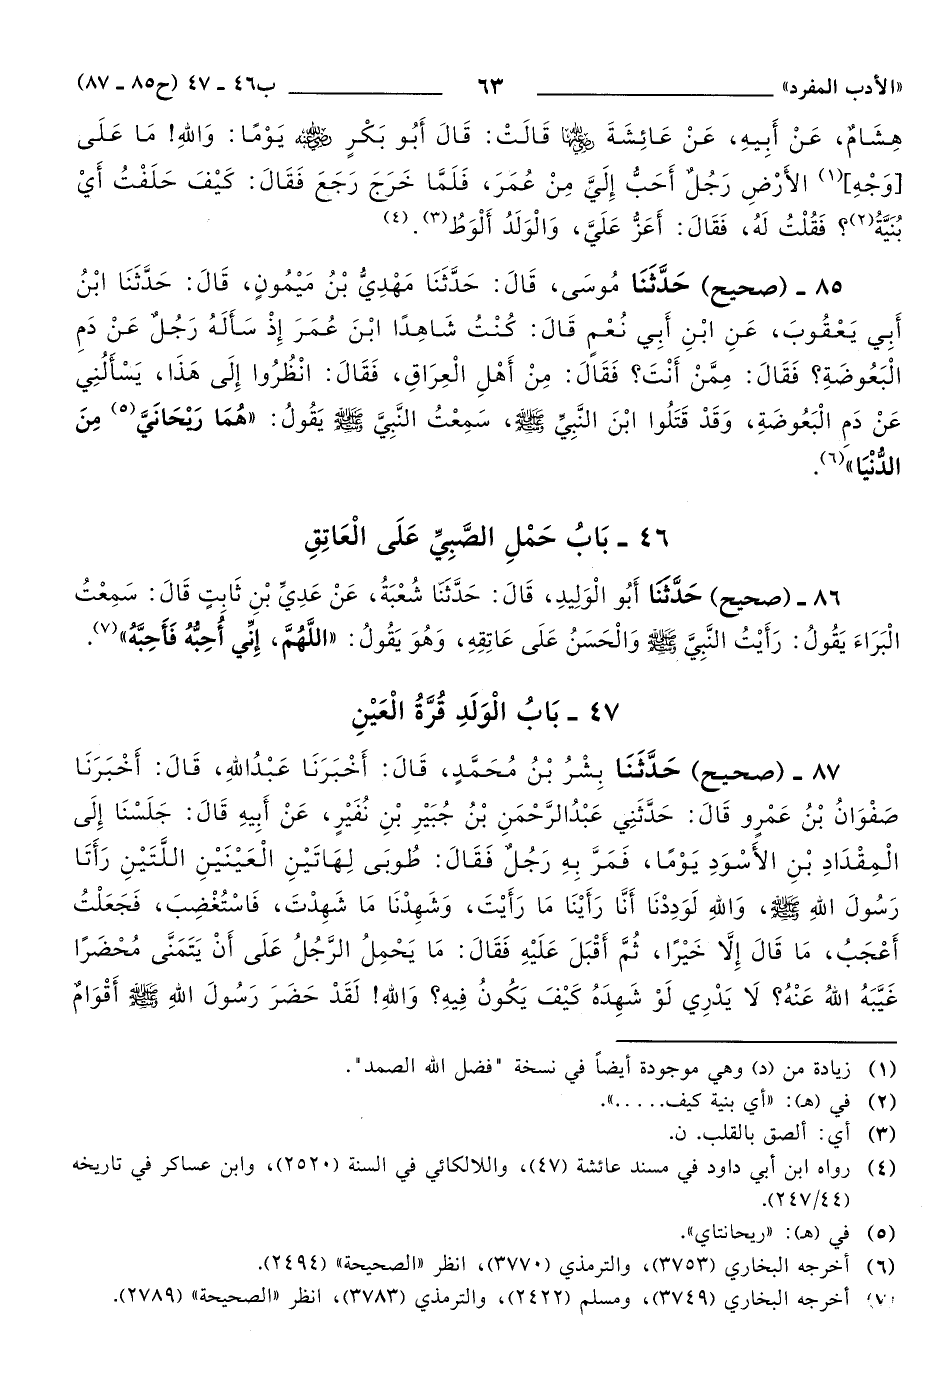 «الأدب المفرد» ٦٣ ب٤٦ ـ ٤٧ (ح٨٥ ـ ٨٧)
هِشَامٌ، عَنْ أَبِيهِ، عَنْ عَائِشَةَ رضي الله عنها قَالَتْ: قَالَ أَبُو بَكْرٍ رضي الله عنه يَوْمًا: وَاللهِ! مَا عَلَى
[وَجْهِ](١) الأَرْضِ رَجُلٌ أَحَبُّ إِلَيَّ مِنْ عُمَرَ، فَلَمَّا خَرَجَ رَجَعَ فَقَالَ: كَيْفَ حَلَفْتُ أَيْ
بُنَيَّةُ(٢)؟ فَقُلْتُ لَهُ، فَقَالَ: أَعَزُّ عَلَيَّ، وَالْوَلَدُ أَلْوَطُ(٣).(٤)
٨٥ ـ (صحيح) حَدَّثَنَا مُوسَى، قَالَ: حَدَّثَنَا مَهْدِيُّ بْنُ مَيْمُونٍ، قَالَ: حَدَّثَنَا ابْنُ
أَبِي يَعْقُوبَ، عَنِ ابْنِ أَبِي نُعْمٍ قَالَ: كُنْتُ شَاهِدًا ابْنَ عُمَرَ إِذْ سَأَلَهُ رَجُلٌ عَنْ دَمِ
الْبَعُوضَةِ؟ فَقَالَ: مِمَّنْ أَنْتَ؟ فَقَالَ: مِنْ أَهْلِ الْعِرَاقِ، فَقَالَ: انْظُرُوا إِلَى هَذَا، يَسْأَلُنِي
عَنْ دَمِ الْبَعُوضَةِ، وَقَدْ قَتَلُوا ابْنَ النَّبِيِّ ﷺ، سَمِعْتُ النَّبِيَّ ﷺ يَقُولُ: «هُمَا رَيْحَانَيَّ(٥) مِنَ
الدُّنْيَا»(٦).
٤٦ ـ بَابُ حَمْلِ الصَّبِيِّ عَلَى الْعَاتِقِ
٨٦ ـ (صحيح) حَدَّثَنَا أَبُو الْوَلِيدِ، قَالَ: حَدَّثَنَا شُعْبَةُ، عَنْ عَدِيِّ بْنِ ثَابِتٍ قَالَ: سَمِعْتُ
الْبَرَاءَ يَقُولُ: رَأَيْتُ النَّبِيَّ ﷺ وَالْحَسَنُ عَلَى عَاتِقِهِ، وَهُوَ يَقُولُ: «اللَّهُمَّ، إِنِّي أُحِبُّهُ فَأَحِبَّهُ»(٧).
٤٧ ـ بَابُ الْوَلَدِ قُرَّةُ الْعَيْنِ
٨٧ ـ (صحيح) حَدَّثَنَا بِشْرُ بْنُ مُحَمَّدٍ، قَالَ: أَخْبَرَنَا عَبْدُاللهِ، قَالَ: أَخْبَرَنَا
صَفْوَانُ بْنُ عَمْرٍو قَالَ: حَدَّثَنِي عَبْدُالرَّحْمَنِ بْنُ جُبَيْرِ بْنِ نُفَيْرٍ، عَنْ أَبِيهِ قَالَ: جَلَسْنَا إِلَى
الْمِقْدَادِ بْنِ الأَسْوَدِ يَوْمًا، فَمَرَّ بِهِ رَجُلٌ فَقَالَ: طُوبَى لِهَاتَيْنِ الْعَيْنَيْنِ اللَّتَيْنِ رَأَتَا
رَسُولَ اللهِ ﷺ، وَاللهِ لَوَدِدْنَا أَنَّا رَأَيْنَا مَا رَأَيْتَ، وَشَهِدْنَا مَا شَهِدْتَ، فَاسْتُغْضِبَ، فَجَعَلْتُ
أَعْجَبُ، مَا قَالَ إِلَّا خَيْرًا، ثُمَّ أَقْبَلَ عَلَيْهِ فَقَالَ: مَا يَحْمِلُ الرَّجُلُ عَلَى أَنْ يَتَمَنَّى مُحْضَرًا
غَيَّبَهُ اللهُ عَنْهُ؟ لَا يَدْرِي لَوْ شَهِدَهُ كَيْفَ يَكُونُ فِيهِ؟ وَاللهِ! لَقَدْ حَضَرَ رَسُولَ اللهِ ﷺ أَقْوَامٌ
(١) زيادة من (د) وهي موجودة أيضاً في نسخة "فضل الله الصمد".
(٢) في (هـ): «أي بنية كيف.....».
(٣) أي: ألصق بالقلب. ن.
(٤) رواه ابن أبي داود في مسند عائشة (٤٧)، واللالكائي في السنة (٢٥٢٠)، وابن عساكر في تاريخه
(٢٤٧/٤٤).
(٥) في (هـ): «ريحانتاي».
(٦) أخرجه البخاري (٣٧٥٣)، والترمذي (٣٧٧٠)، انظر «الصحيحة» (٢٤٩٤).
(٧) أخرجه البخاري (٣٧٤٩)، ومسلم (٢٤٢٢)، والترمذي (٣٧٨٣)، انظر «الصحيحة» (٢٧٨٩).